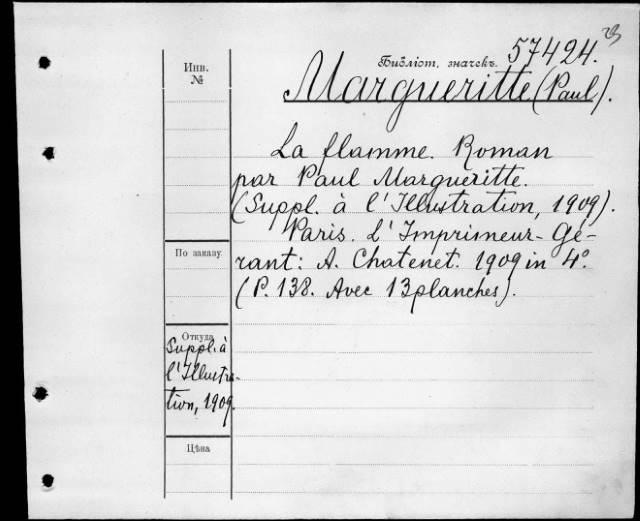 Инв.
№
Библіот. значекъ. 57424.
Margueritte (Paul).
La flamme. Roman
par Paul Margueritte.
(Suppl. à l'Illustration, 1909).
Paris. L'Imprimeur-Gé-
rant: A. Chatenet. 1909 in 4°.
(P. 138. Avec 13 planches).
По заказу.
Откуда
Suppl. à
l'Illustra-
tion, 1909.
Цѣна